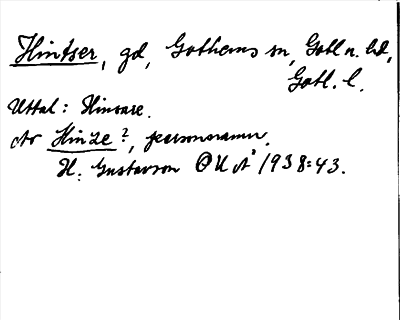 Hintser, gd, Gothems sn, Gotl n. hd,
Gotl. l.
Uttal: Hinsare.
Av Hinze?, personnamn.
H. Gustavson OUÅ 1938:43.